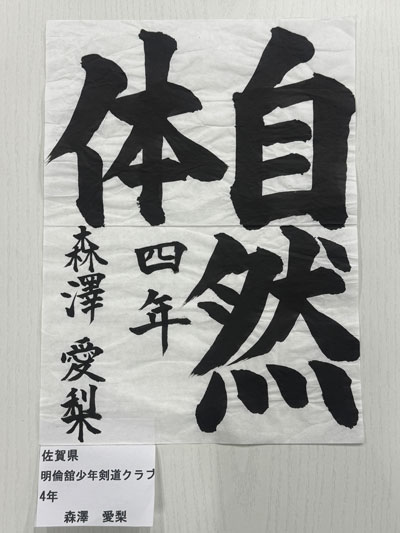 自然
体
四年
森澤 愛梨
佐賀県
明倫舘少年剣道クラブ
4年
森澤 愛梨